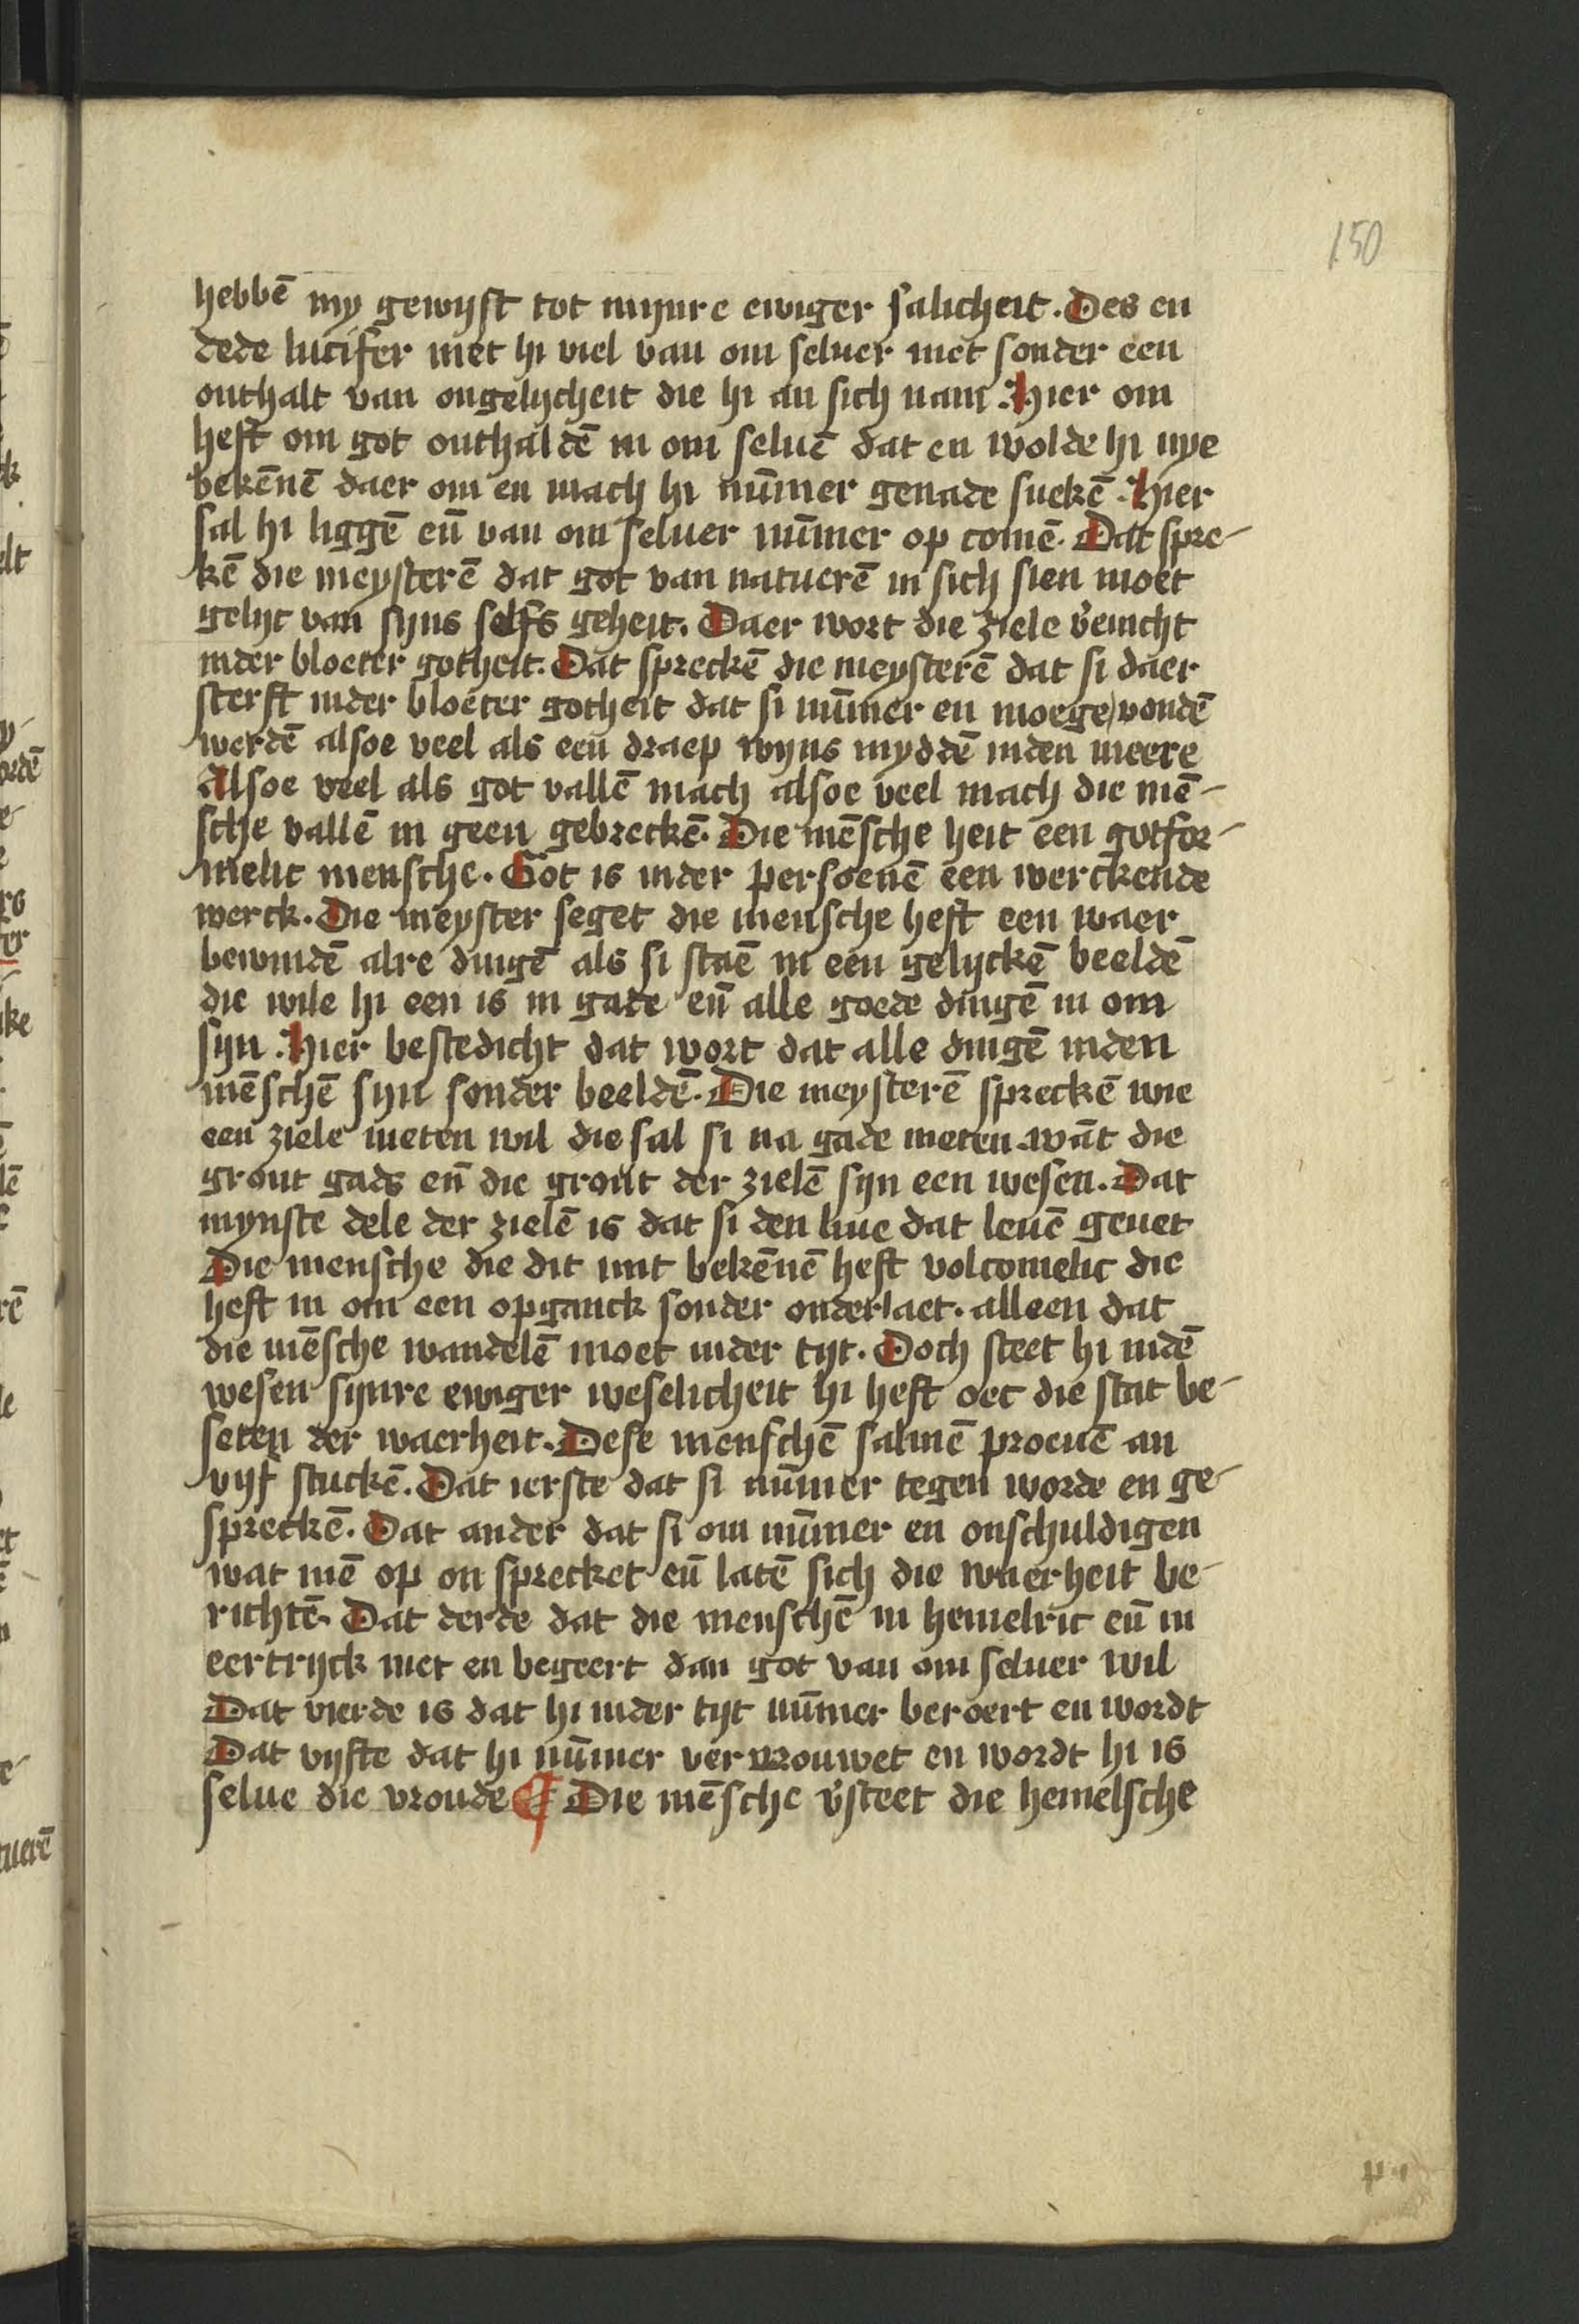 150
hebbē my gewijst tot mijnre ewiger salicheit. Des en
dede lucifer niet hi viel van om seluer niet sonder een
onthalt van ongelijcheit die hi an sich nam. Hier om
heft om got onthaldē in om seluē dat en wolde hi nye
bekēnē daer om en mach hi nūmer genade suekē. Hier
sal hi liggē eñ van om seluer nūmer op comē. Dat spre-
kē die meysterē dat got van natuerē in sich sien moet
gelijc van sijns selfs geheit. Daer wort die ziele v̄nicht
inder bloeter gotheit. Dat spreckē die meysterē dat si daer
sterft inder bloeter gotheit dat si nūmer en moege vondē
werdē alsoe veel als een draep wijns myddē inden meere
Alsoe veel als got vallē mach alsoe veel mach die mē-
sche vallē in geen gebreckē. Die mēsche heit een gotfor-
melic mensche. Got is inder persoenē een werckende
werck. Die meyster seget die mensche heft een waer
bewindē alre dingē als si staē in een gelijckē beeldē
die wile hi een is in gade eñ alle goede dingē in om
sijn. Hier bestedicht dat wort dat alle dingē inden
mēschē sijn sonder beeldē. Die meysterē spreckē wie
een ziele meten wil die sal si na gade meten. wāt die
gront gads eñ die gront der zielē sijn een wesen. Dat
mynste dele der zielē is dat si den liue dat leuē geuet
Die mensche die dit mit bekēnē heft volcomelic die
heft in om een opganck sonder onderlaet. alleen dat
die mēsche wandelē moet inder tijt. Doch steet hi indē
wesen sijnre ewiger weselicheit hi heft oec die stat be-
seten der waerheit. Dese menschē salmē proeuē an
vijf stuckē. Dat ierste dat si nūmer tegen worde en ge-
spreckē. Dat ander dat si om nūmer en onschuldigen
wat mē op on sprecket eñ latē sich die waerheit be-
richtē. Dat derde dat die menschē in hemelric eñ in
eertrijck niet en begeert dan got van om seluer wil
Dat vierde is dat hi inder tijt nūmer beroert en wordt
Dat vijfte dat hi nūmer vervrouwet en wordt hi is
selue die vroude ¶ Die mēsche v̄steet die hemelsche